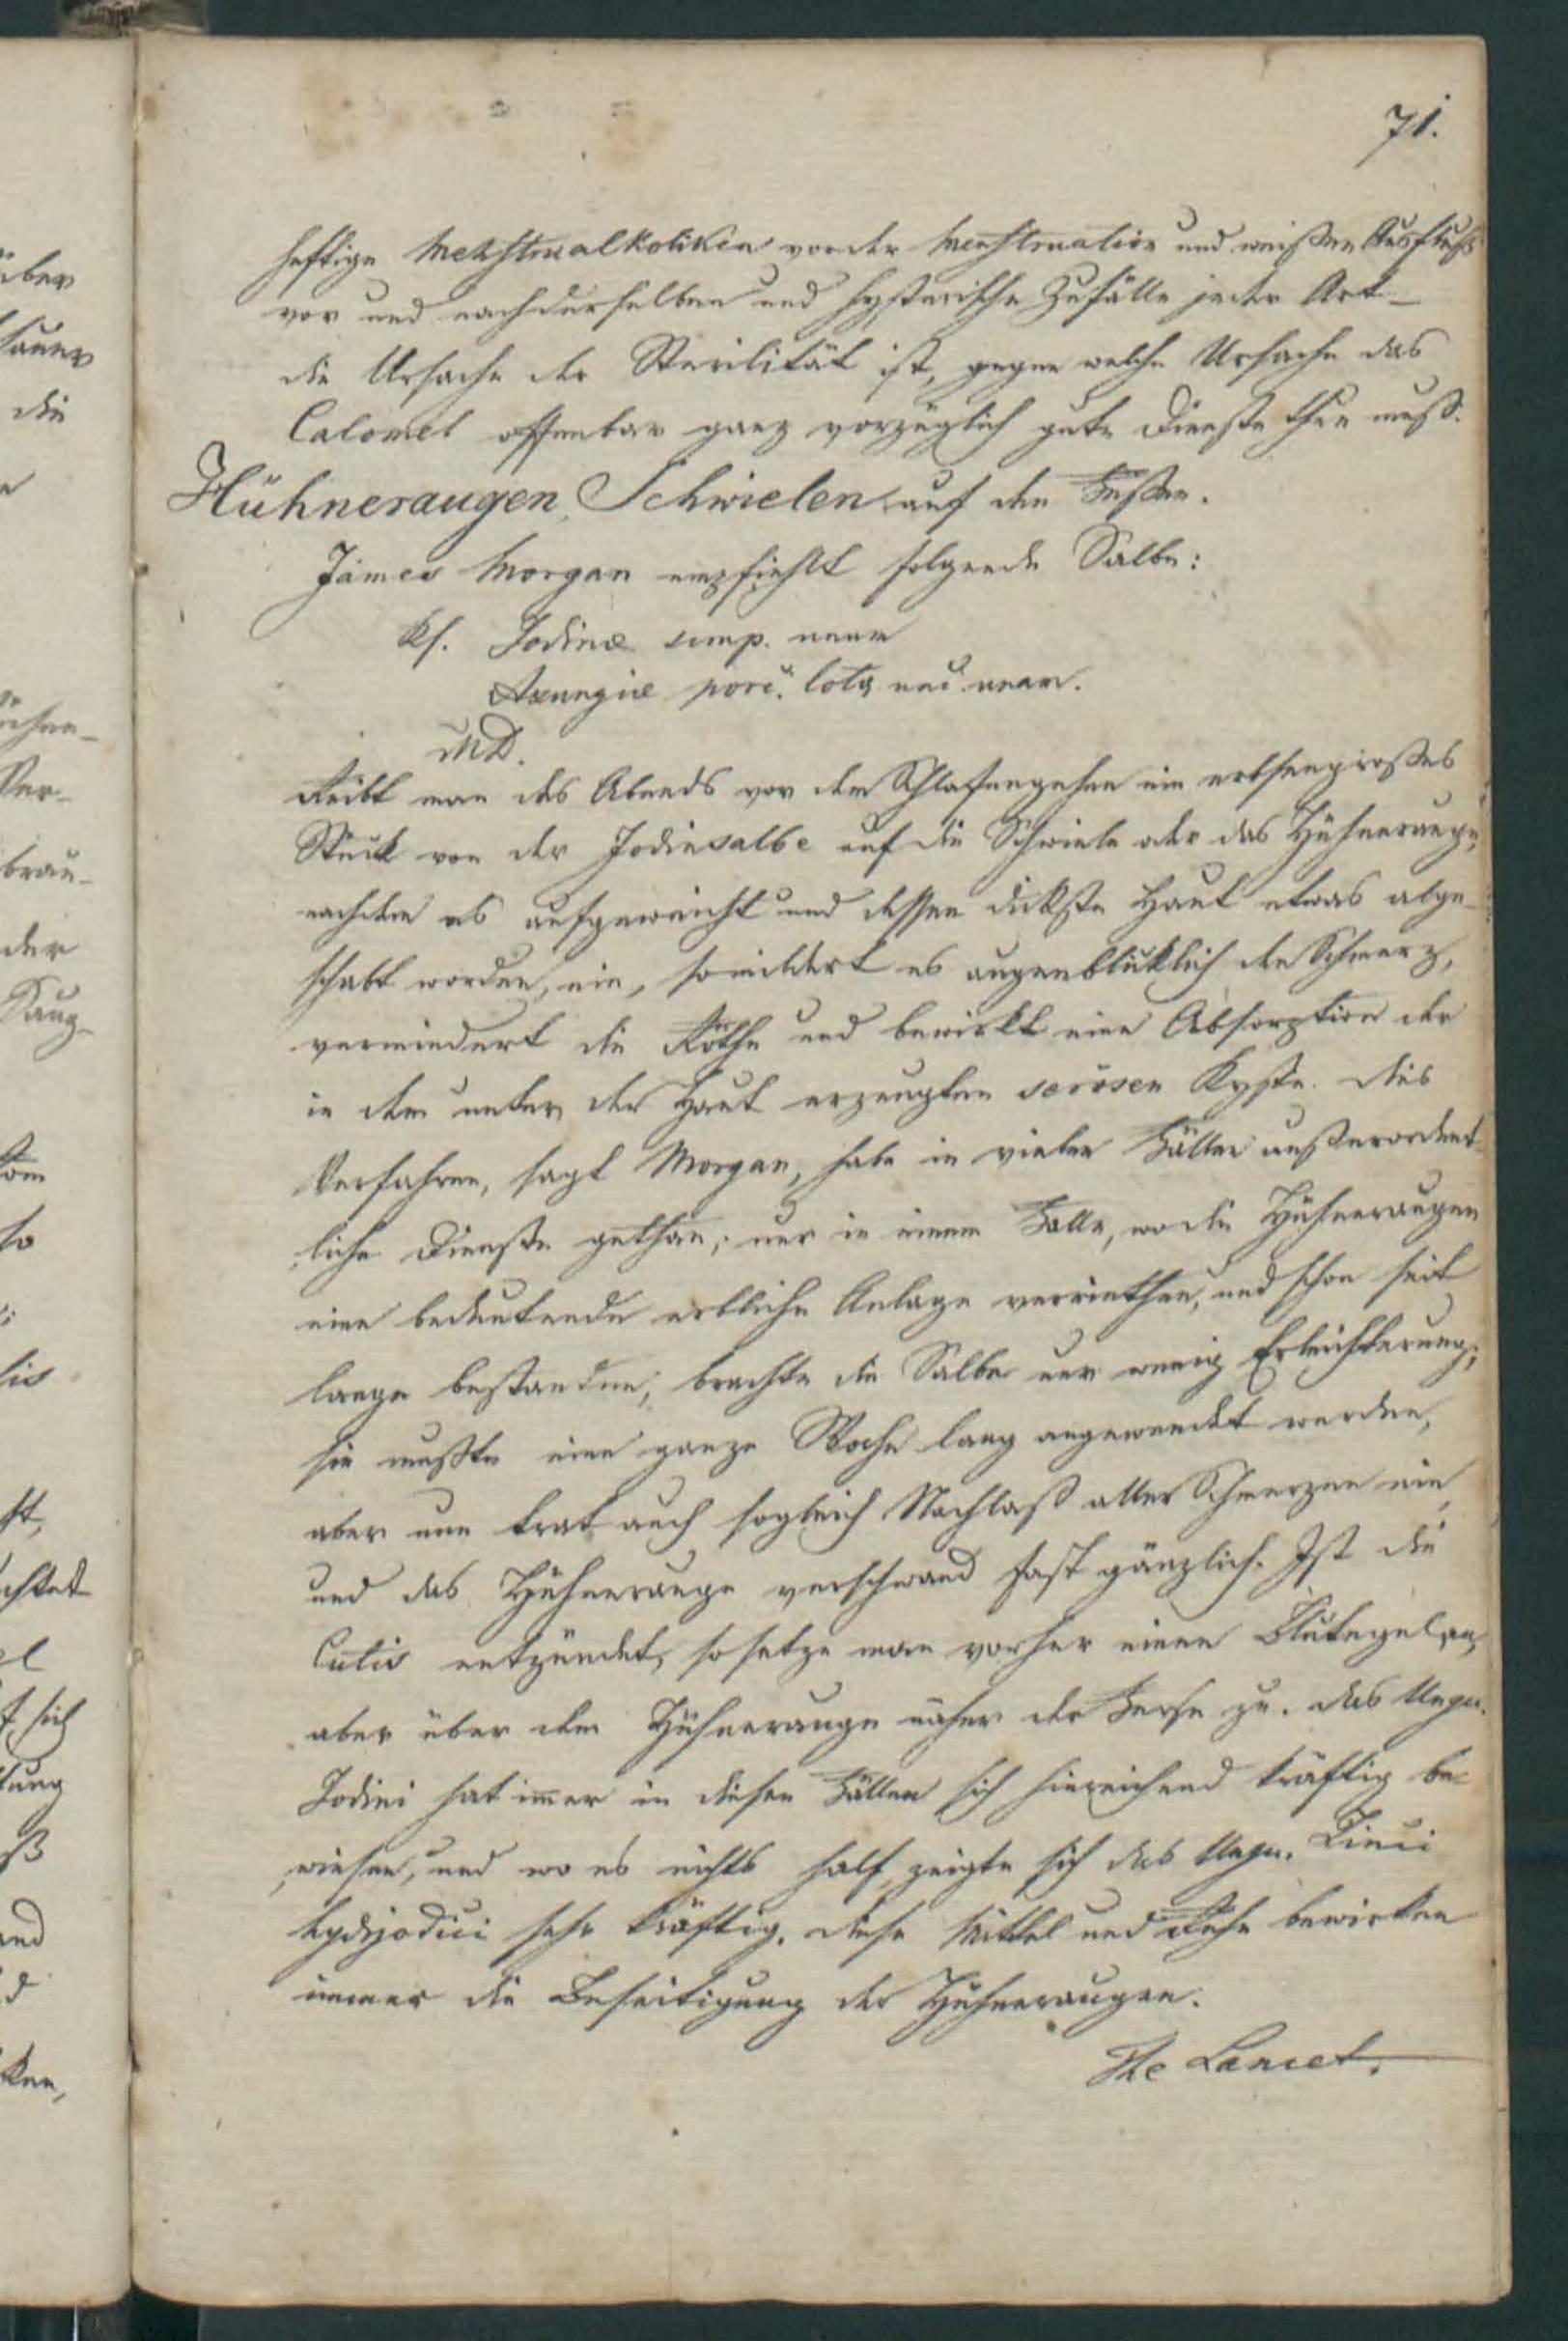 71.
heftige Menstrualkoliken vor der Menstruation und weißer Ausfluß
vor und nach derselben und hysterische Zufälle jeder Art –
die Ursache der Sterilität ist, gegen welche Ursache das
Calomel offenbar ganz vorzüglich gute Dienste thun muß.
Hühneraugen, Schwielen auf den Füßen.
James Morgan empfiehlt folgende Salbe:
Rf. Jodinae
Axungiae porc. lota unam.
MD.
Reibt man des Abends vor dem Schlafengehen ein erbsengroßes
Stück von der Jodinsalbe auf die Schwiele oder das Hühnerauge,
nachdem es aufgeweicht und dessen dickste Haut etwas abge-
schabt worden, ein, so mildert es augenblicklich den Schmerz,
vermindert die Röthe und bewirkt eine Absorption der
in dem unter der Haut erzeugten serösen Kyste. Dies
Verfahren, sagt Morgan, habe in vielen Fällen außerordent-
liche Dienste gethan; nur in einem Falle, wo die Hühneraugen
eine bedeutende erbliche Anlage verriethen, und schon seit
lange bestanden, brachte die Salbe nur wenig Erleichterung;
sie mußte eine ganze Woche lang angewendet werden,
aber nun trat auch sogleich Nachlaß aller Schmerzen ein,
und das Hühnerauge verschwand fast gänzlich. Ist die
Cutis entzündet, so setze man vorher einen Blutegel an,
aber über dem Hühnerauge näher der Ferse zu. Das Ungu.
Jodini hat immer in diesen Fällen sich hinreichend kräftig be-
wiesen, und wo es nichts half, zeigte sich das Ungu. Zinci
hydrjodici sehr kräftig. Diese Mittel und Ruhe bewirken
immer die Beseitigung der Hühneraugen.
The Lancet.